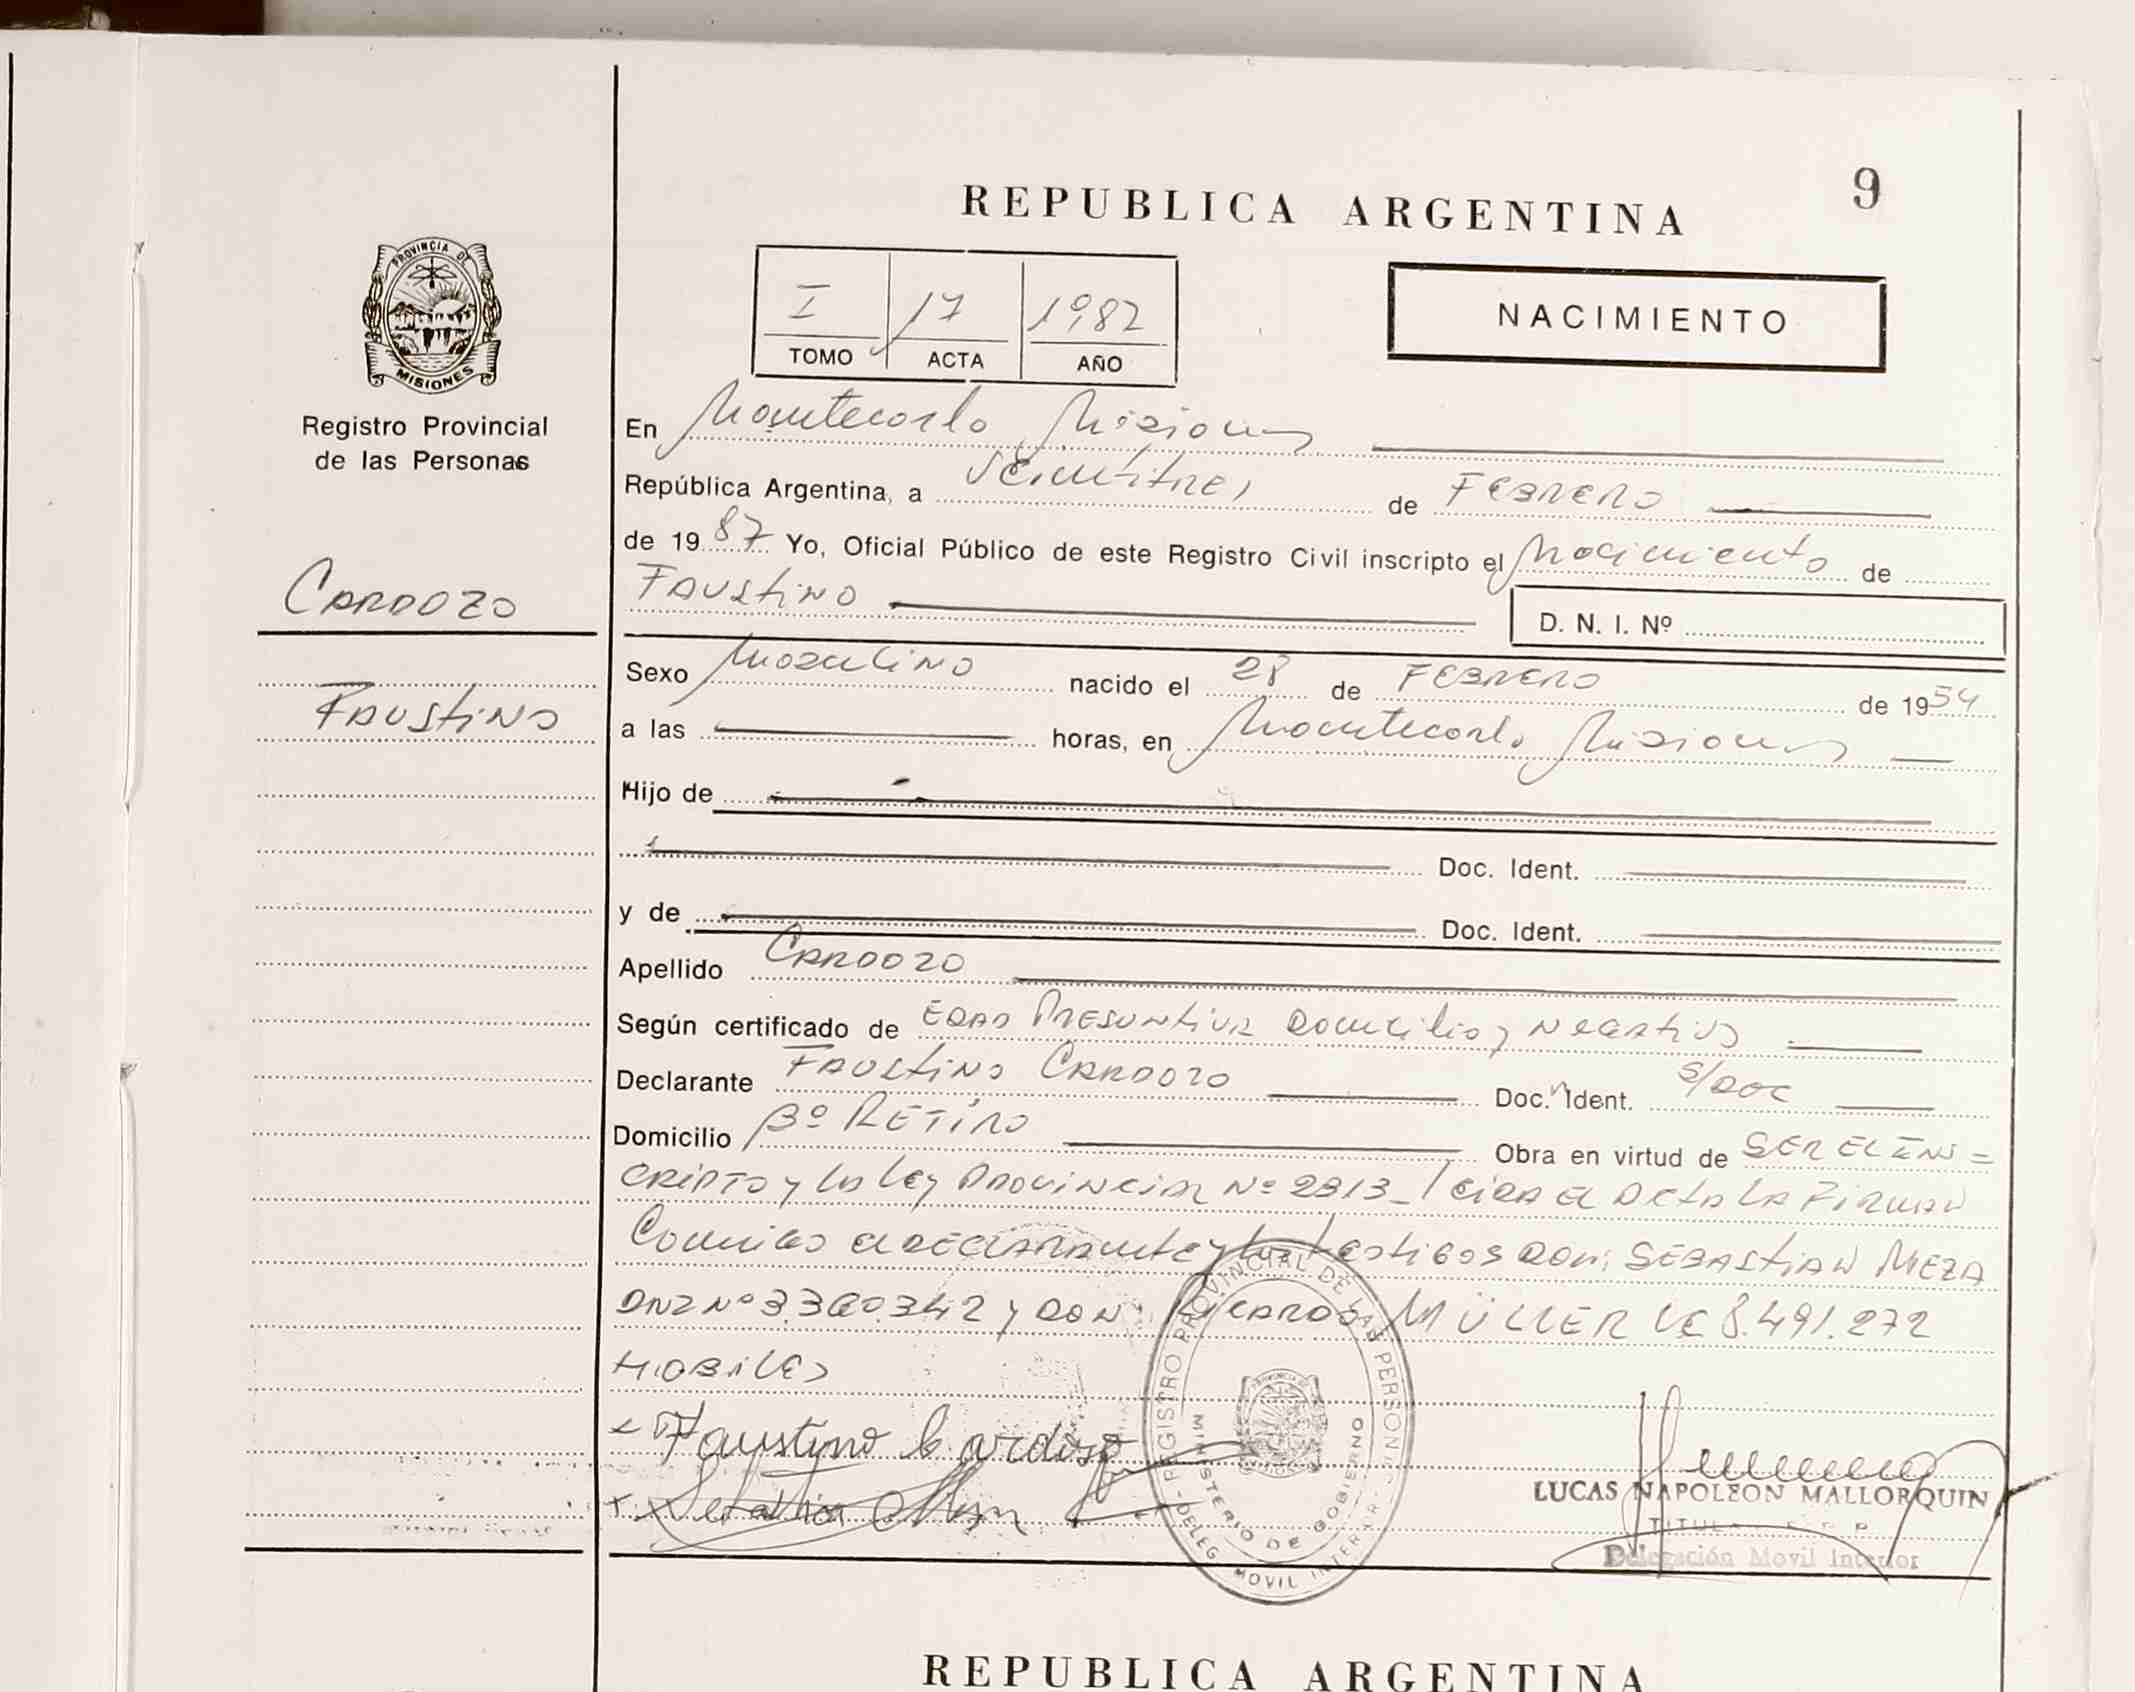 9
REPUBLICA ARGENTINA
PROVINCIA DE
MISIONES
Registro Provincial
de las Personas
CARDOZO
FAUSTINO
I 17 1982
TOMO ACTA AÑO
NACIMIENTO
En Montecarlo Misiones
República Argentina, a veintitres de FEBRERO
de 1987 Yo, Oficial Público de este Registro Civil inscripto el Nacimiento de
FAUSTINO
D. N. I. Nº
Sexo Masculino nacido el 28 de FEBRERO de 1954
a las horas, en Montecarlo Misiones
Hijo de
Doc. Ident.
y de Doc. Ident.
Apellido CARDOZO
Según certificado de EDAD PRESUNTIVA Domicilio y NEGATIVO
Declarante FAUSTINO CARDOZO Doc. Ident. S/DOC
Domicilio Bº RETIRO Obra en virtud de SER EL INS=
CRIPTO y la Ley PROVINCIAL Nº 2313_ Leida el ACTA LA FIRMAN
Conmigo el DECLARANTE y los testigos Don: SEBASTIAN MEZA
DNI Nº 3.360.342 y DON: RICARDO MÜLLER LE 8.491.272
HABILES
Faustino Cardozo
REGISTRO PROVINCIAL DE LAS PERSONAS
MINISTERIO DE GOBIERNO
DELEG. MOVIL INTERIOR
LUCAS NAPOLEON MALLORQUIN
Delegación Movil Interior
REPUBLICA ARGENTINA